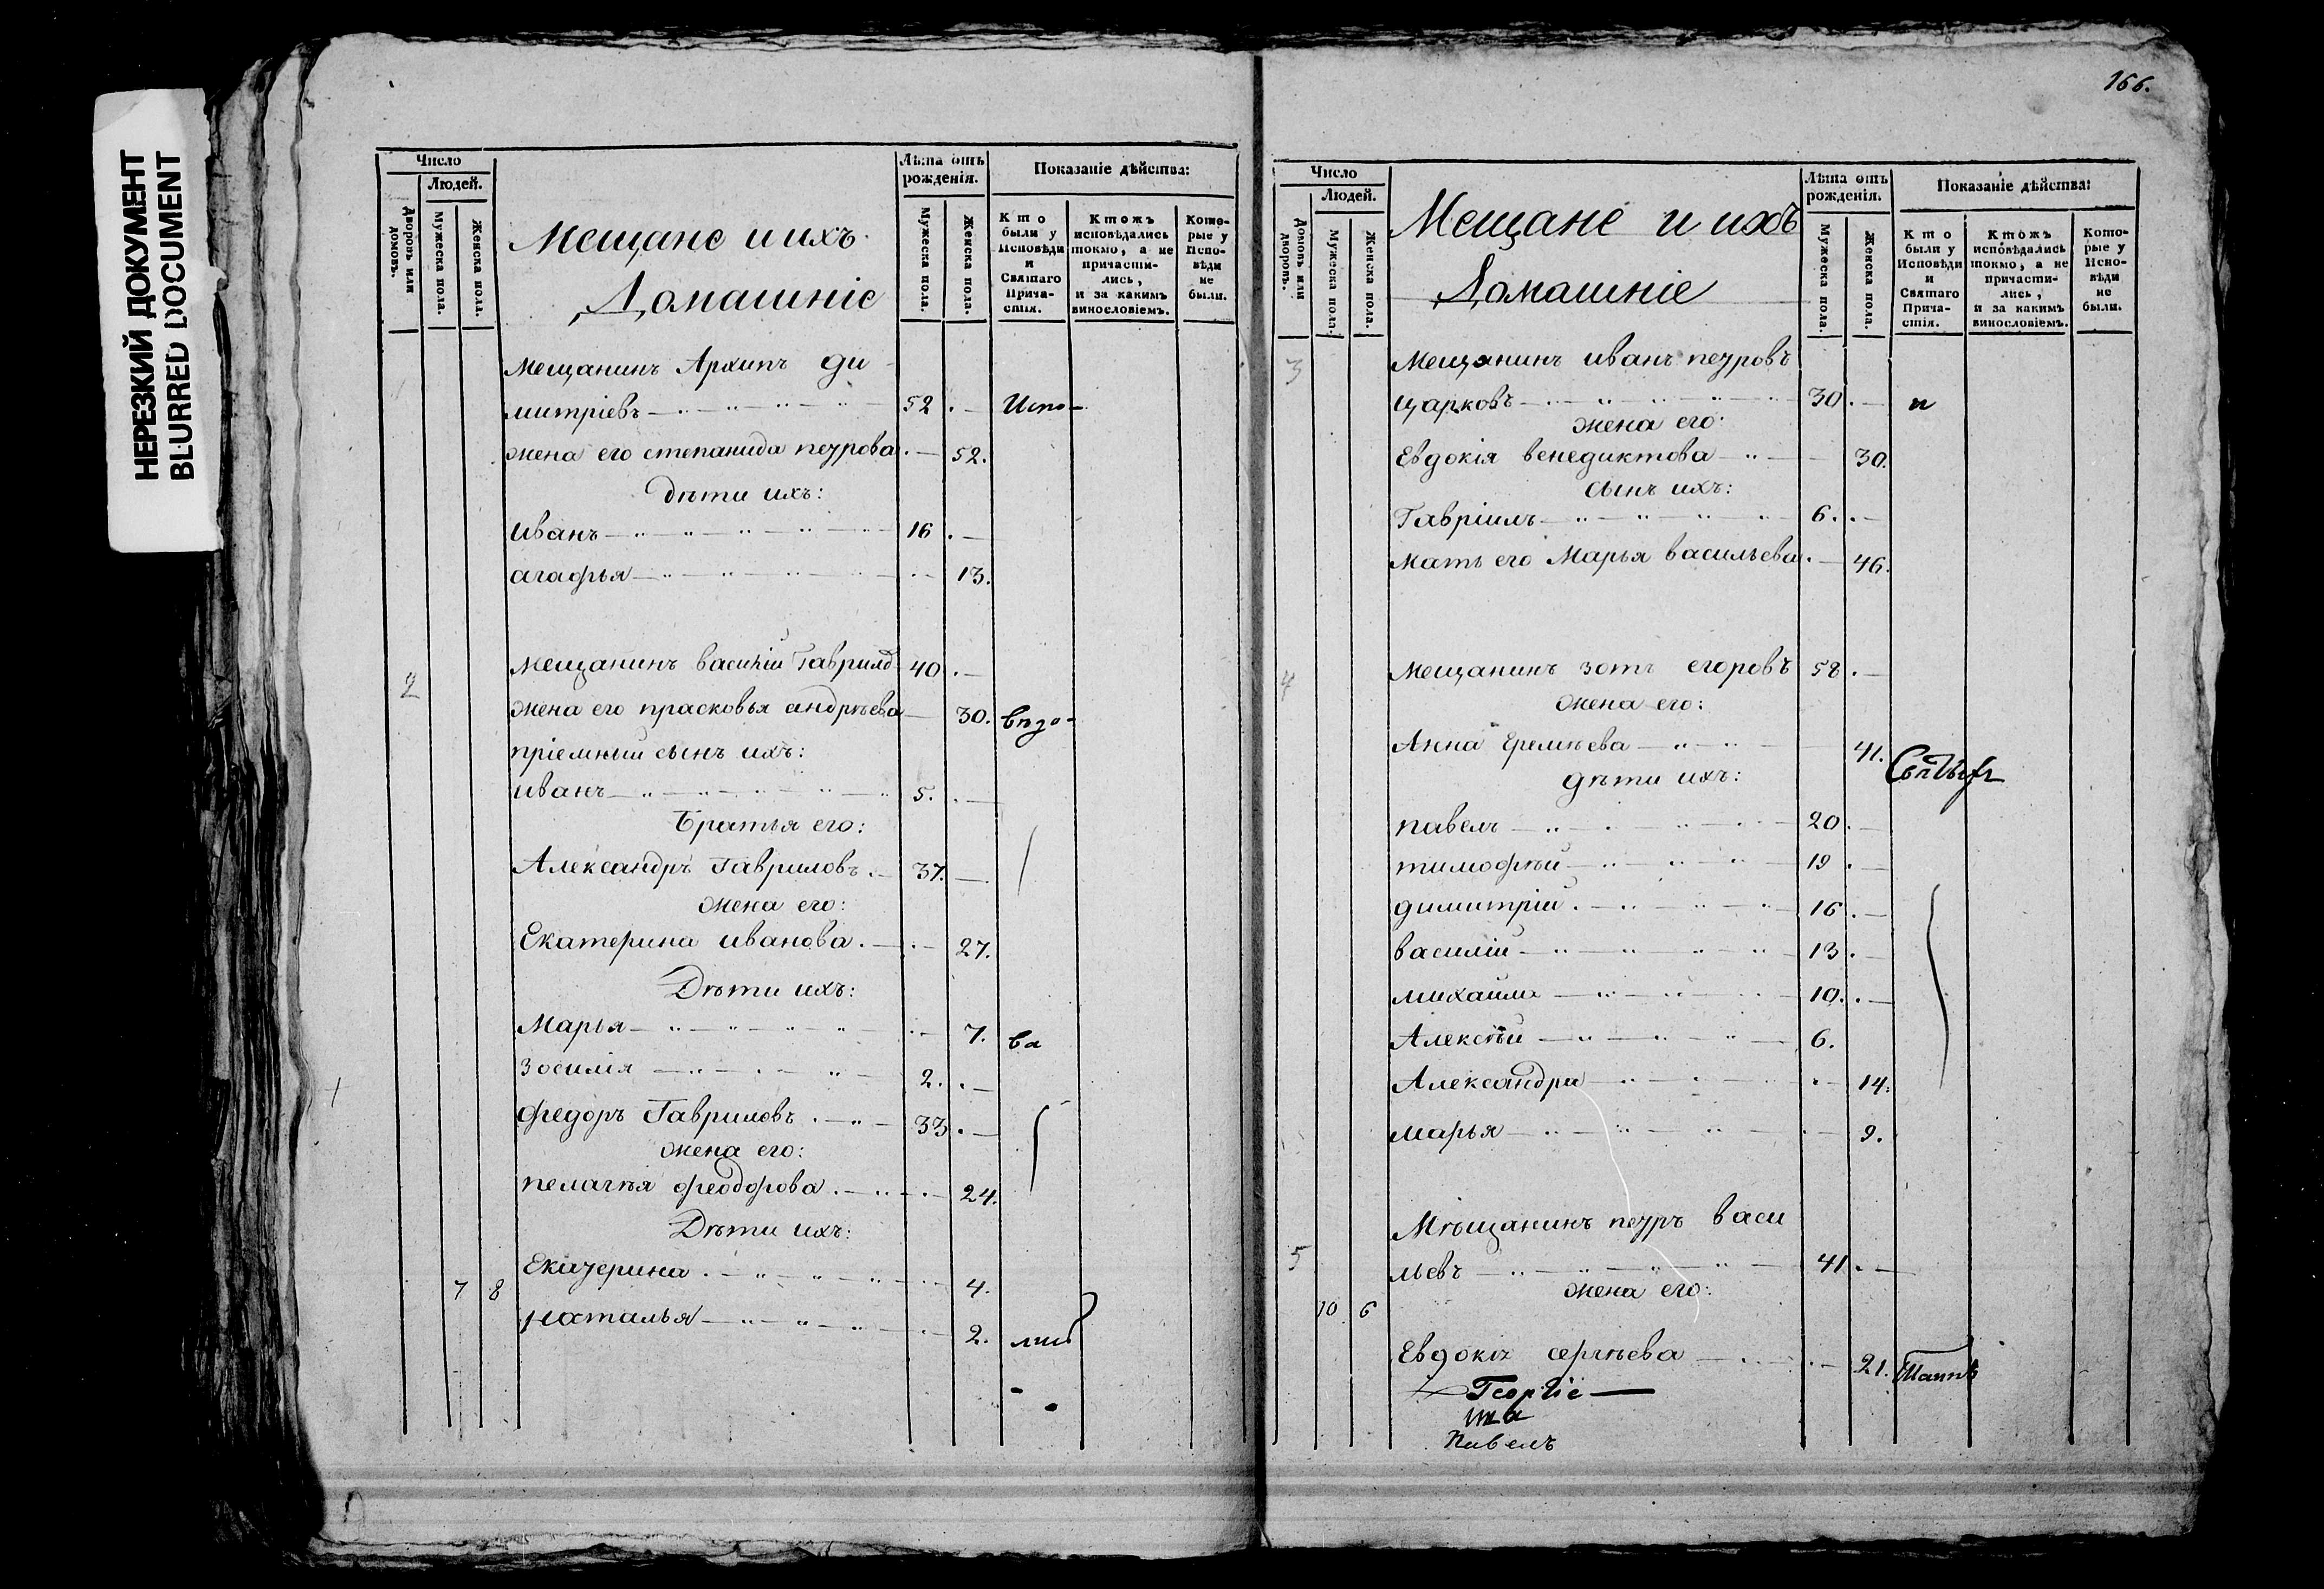 НЕРЕЗКИЙ ДОКУМЕНТ
BLURRED DOCUMENT
Число
Людей.
Дворовъ или домовъ.
Мужеска пола.
Женска пола.
Мещане и ихъ
Домашніе
Лѣта отъ рожденія.
Мужеска пола.
Женска пола.
Показаніе дѣйства:
Кто были у Исповѣди и Святаго Прича-стія.
Ктожъ исповѣдались токмо, а не причасти-лись, и за какимъ винословіемъ.
Кото-рые у Испо-вѣди не были.
Мещанинъ Архипъ Ди
митріевъ 52 Испо-
жена его степанида петрова 52.
дѣти ихъ:
иванъ 16
агафья 13.
2 Мещанинъ василій Гаврилов 40
жена его прасковья андрѣева 30.
пріемный сынъ ихъ:
иванъ 5.
Братья его:
Александръ Гавриловъ 37.
жена его:
Екатерина иванова 27.
Дѣти ихъ:
Марья 7. ва
Зосимія 2.
Федоръ Гавриловъ 33
жена его:
пелагѣя феодорова 24.
Дѣти ихъ:
Екатерина 4.
7 8
Наталья 2.
166.
Число
Людей.
Домовъ или дворовъ.
Мужеска пола.
Женска пола.
Мещане и ихъ
Домашніе
Лѣта отъ рожденія.
Мужеска пола.
Женска пола.
Показаніе дѣйства:
Кто были у Исповѣди и Святаго Прича-стія.
Ктожъ исповѣдались токмо, а не причасти-лись, и за какимъ винословіемъ.
Кото-рые у Испо-вѣди не были.
3 Мещанинъ иванъ петровъ
царковъ 30 и
жена его:
Евдокія венедиктова 30.
сынъ ихъ:
Гавріилъ 6.
Мать его Марья васильева 46.
4 Мещанинъ зотъ егоровъ 58
жена его:
Анна Еремѣева 41.
дѣти ихъ:
павелъ 20
тимофѣй 19
димитрій 16
василій 13
михаила 10.
Алексѣй 6.
Александра 14.
марья 9.
Мѣщанинъ петръ васи
5 льевъ 41
жена его:
10 6
Евдокія сергѣева 21.
Георгіе
Павелъ